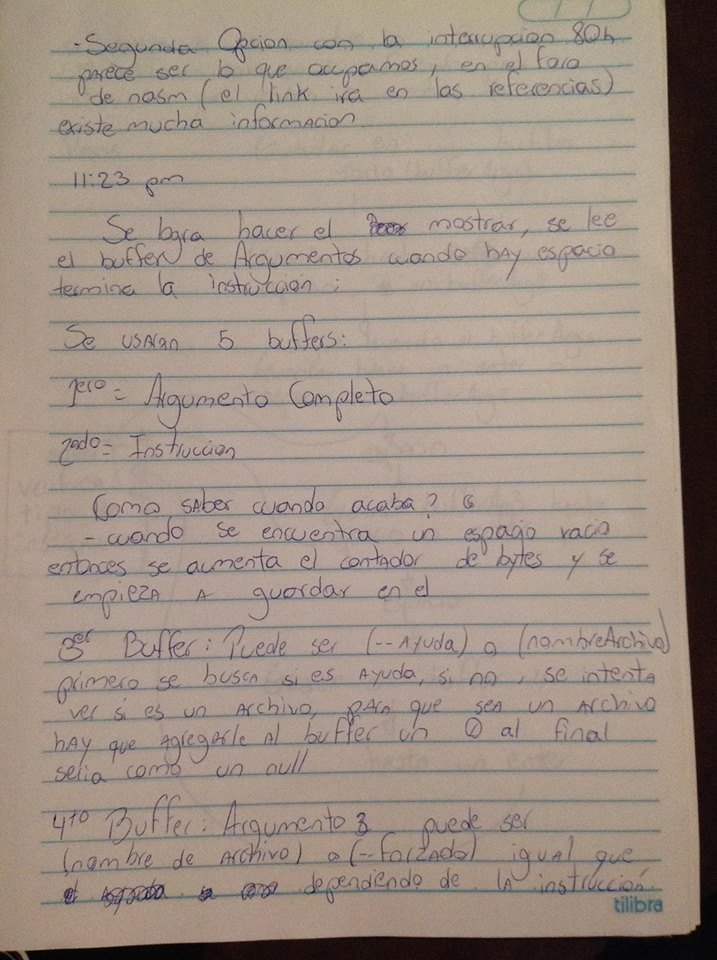 - Segunda Opcion con la interrupcion 80h
parece ser lo que ocupamos, en el foro
de nasm (el link ira en las referencias)
existe mucha informacion
11:23 pm
Se logra hacer el mostrar, se lee
el buffer de Argumentos cuando hAy espacio
termina la instruccion.
Se usAran 5 buffers:
1ero = Argumento Completo
2ndo = Instruccion
Como sAber cuando acaba?
- cuando se encuentra un espacio vacio
entonces se aumenta el contador de bytes y se
empiezA A guardar en el
3er Buffer: Puede ser (--Ayuda) o (nombreArchivo)
primero se buscA si es Ayuda, si no, se intentA
ver si es un Archivo, pArA que seA un Archivo
hAy que AgregArle Al buffer un 0 al final
seria como un null
4to Buffer: Argumento 3 puede ser
(nombre de Archivo) o (--forzAdo) iguAl que
dependendo de lA instrucción.
tilibra